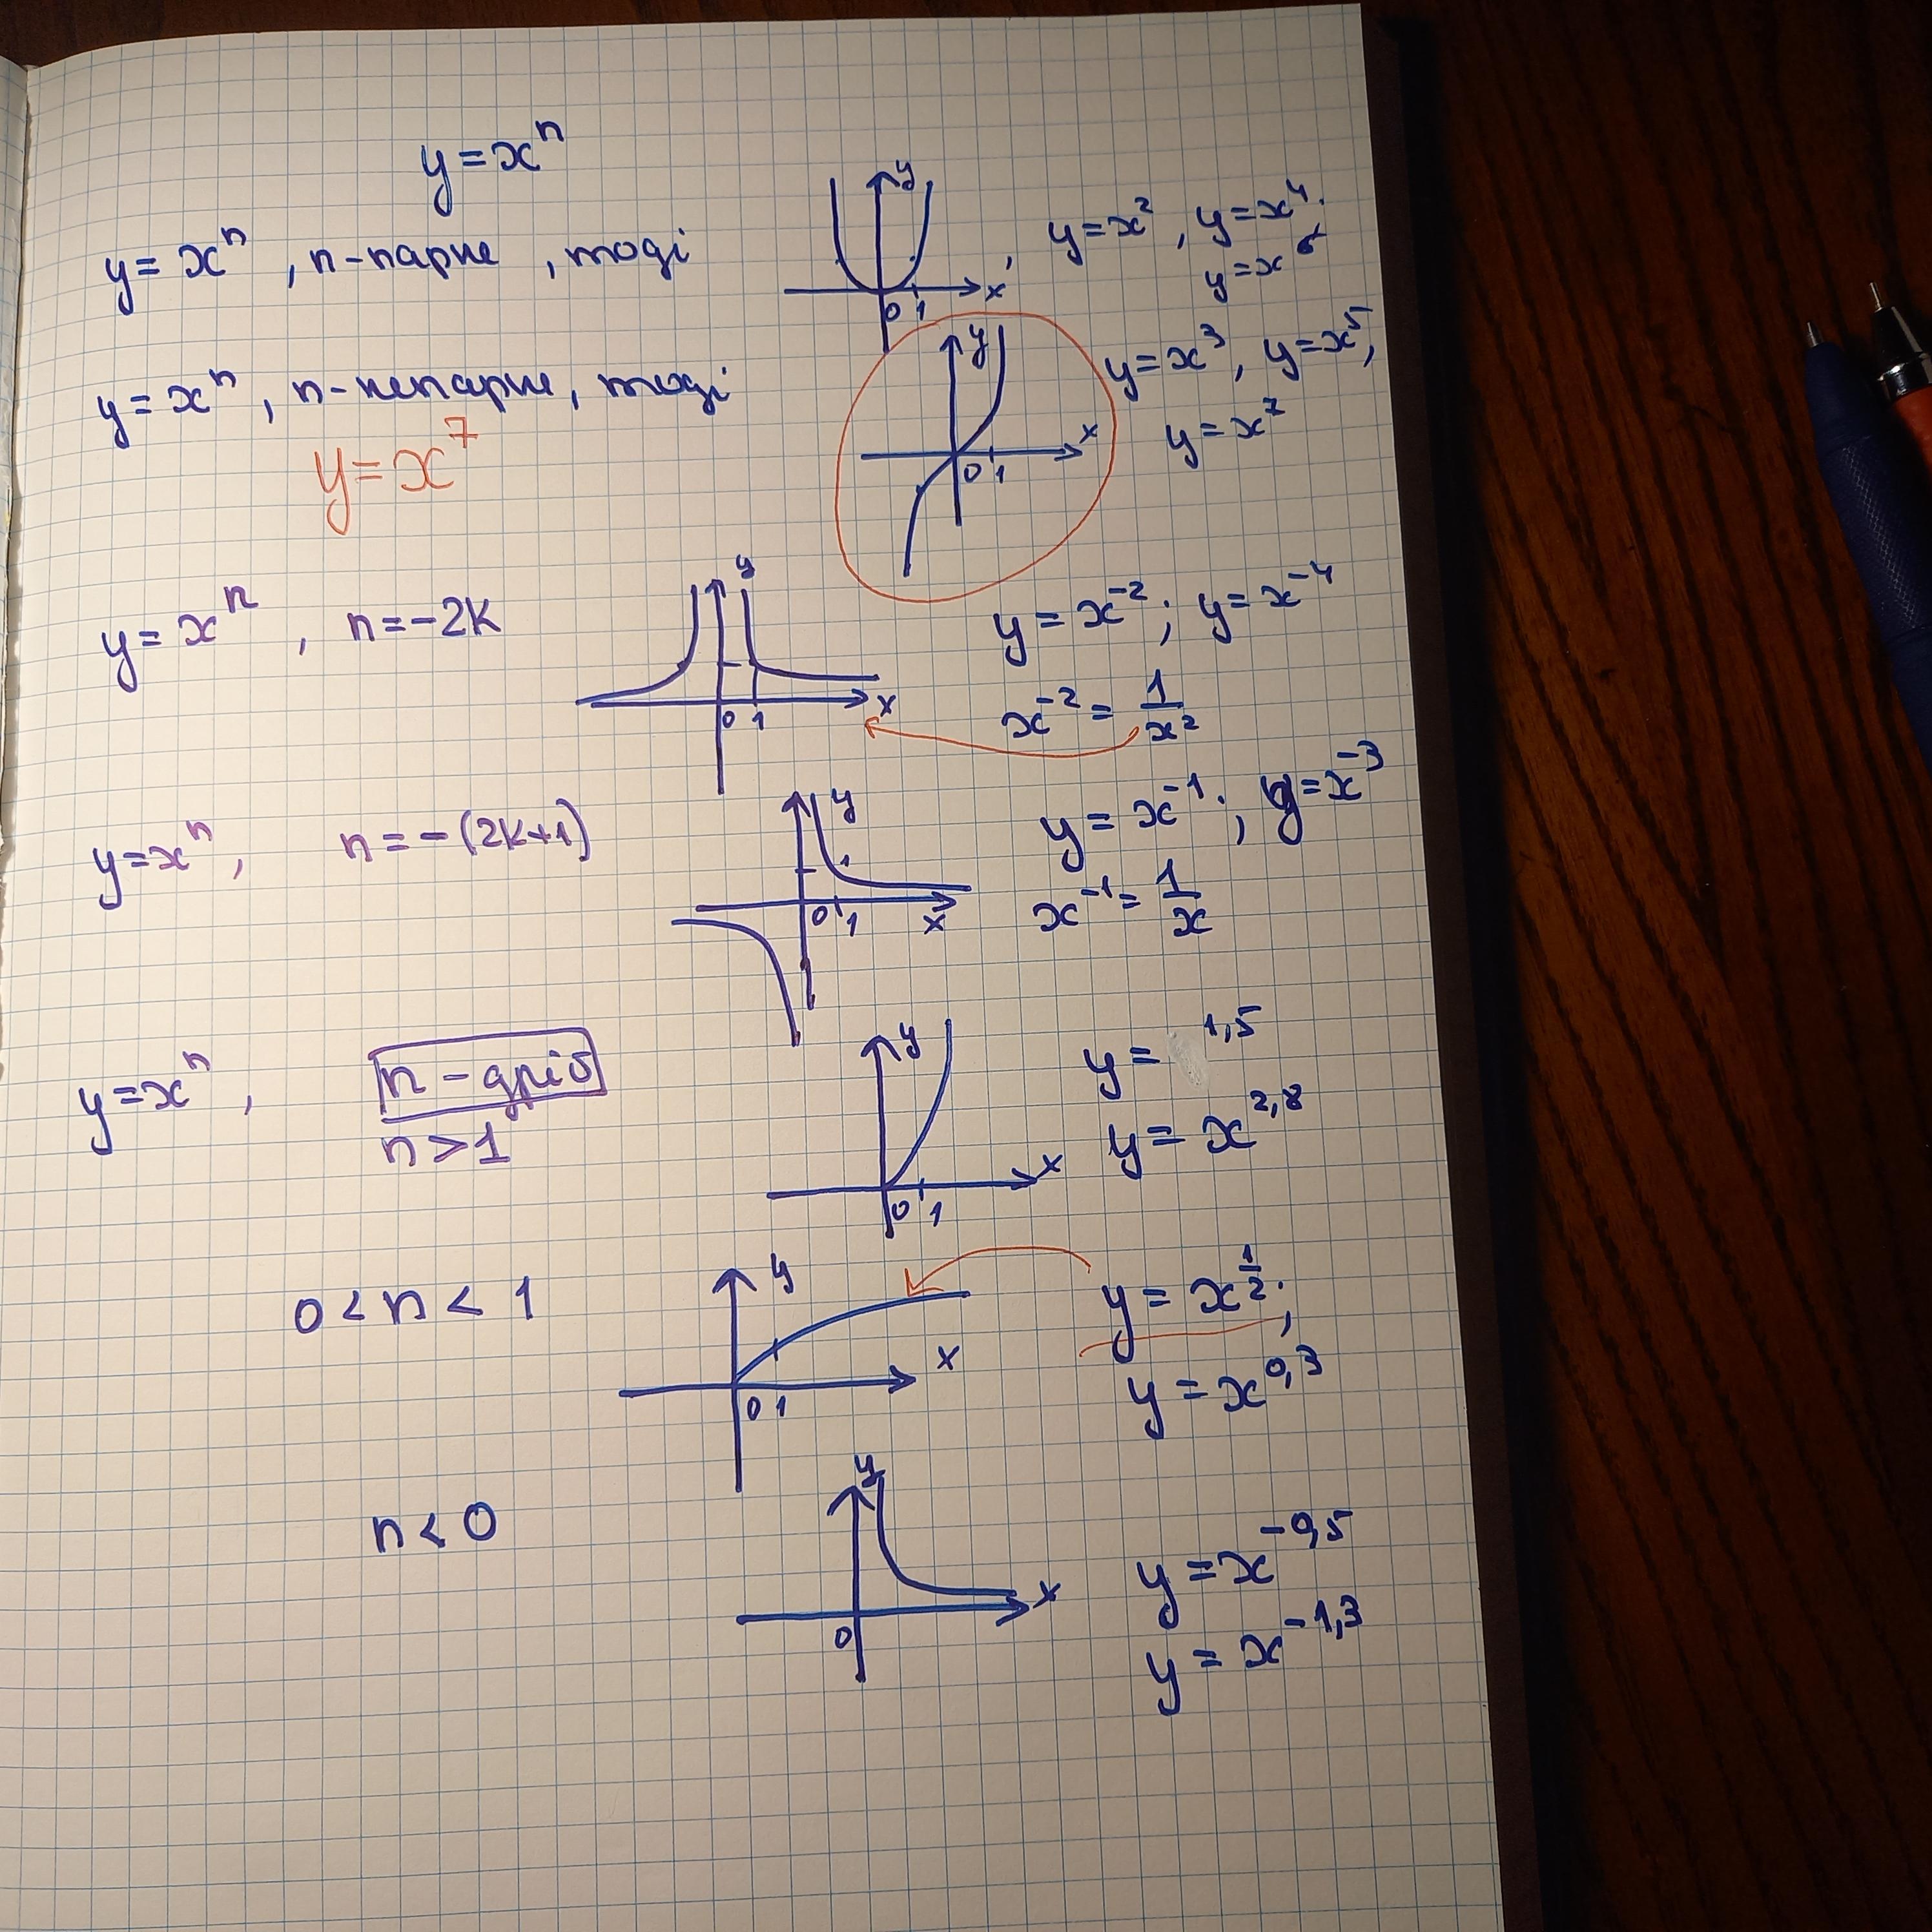 y = xⁿ
y = xⁿ , n - парне , тоді y x 0 1 , y = x² , y = x⁴;
y = x⁶
y = xⁿ , n - непарне, тоді y x 0 1 y = x³, y = x⁵,
y = x⁷ y = x⁷
y = xⁿ , n = -2k y x 0 1 y = x⁻² ; y = x⁻⁴
x⁻² = 1/x²
y = xⁿ, n = -(2k+1) y 1 x 0 1 y = x⁻¹; y = x⁻³
x⁻¹ = 1/x
y = xⁿ , n - дріб y x 0 1 y = ¹,⁵
n > 1 y = x²,⁸
0 < n < 1 y x 0 1 y = x^(1/2);
y = x⁰,³
n < 0 y x 0 y = x⁻⁰,⁵
y = x⁻¹,³